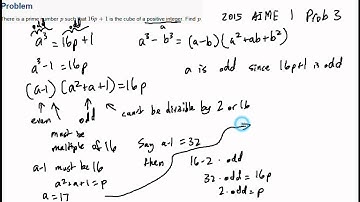 Problem
There is a prime number p such that 16p + 1 is the cube of a positive integer. Find p.
2015 AIME 1 Prob 3
odd odd
a
a³ = 16p + 1
a³ - b³ = (a-b)(a²+ab+b²)
a³ - 1 = 16p
a is odd since 16p+1 is odd
(a-1)(a²+a+1) = 16p
even odd
can't be divisible by 2 or 16
must be multiple of 16
a-1 must be 16
a²+a+1 = p
a = 17
Say a-1 = 32
then 16·2·odd
32·odd = 16p
2·odd = p